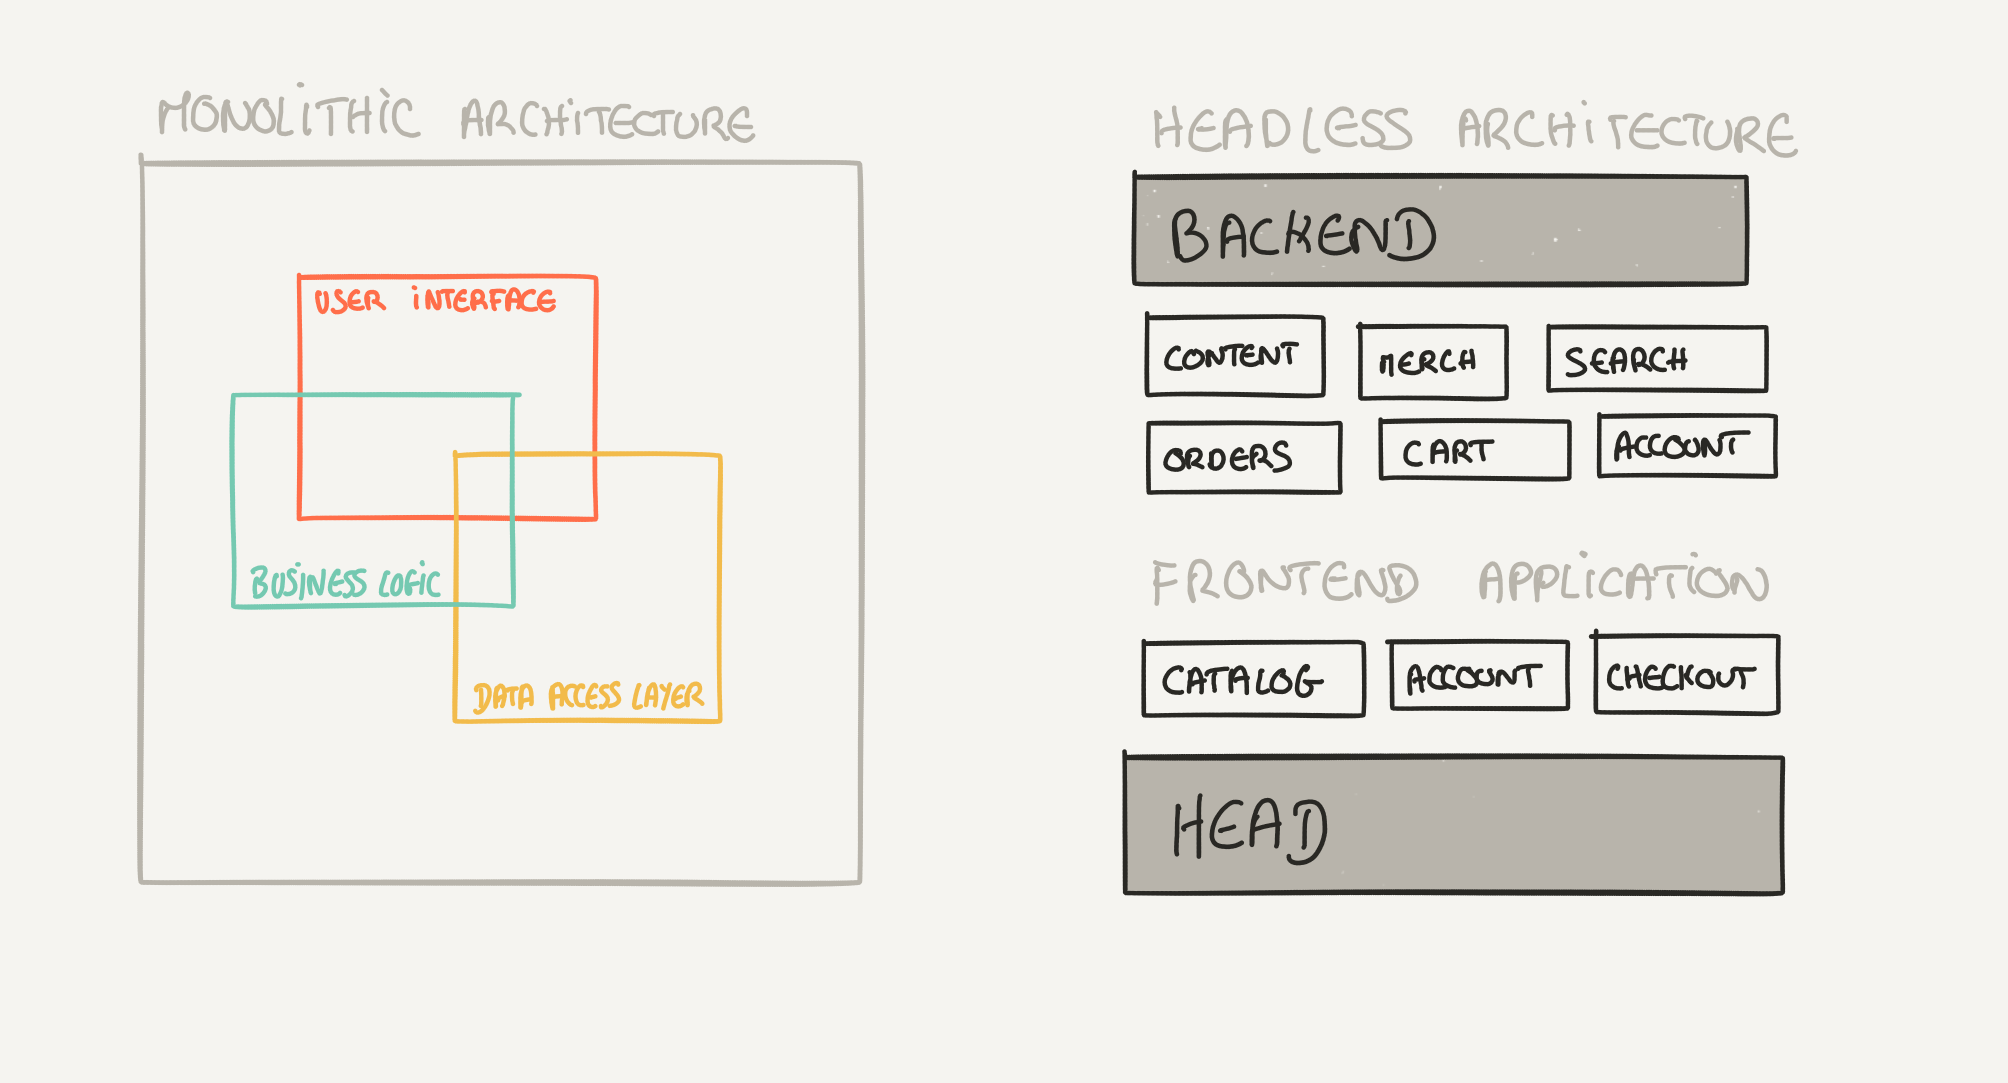 MONOLiTHiC ARCHiTECTURE
USER iNTERFACE
BUSiNESS LOGiC
DATA ACCESS LAYER
HEADLESS ARCHiTECTURE
BACKEND
CONTENT MERCH SEARCH
ORDERS CART ACCOUNT
FRONTEND APPLiCATiON
CATALOG ACCOUNT CHECKOUT
HEAD